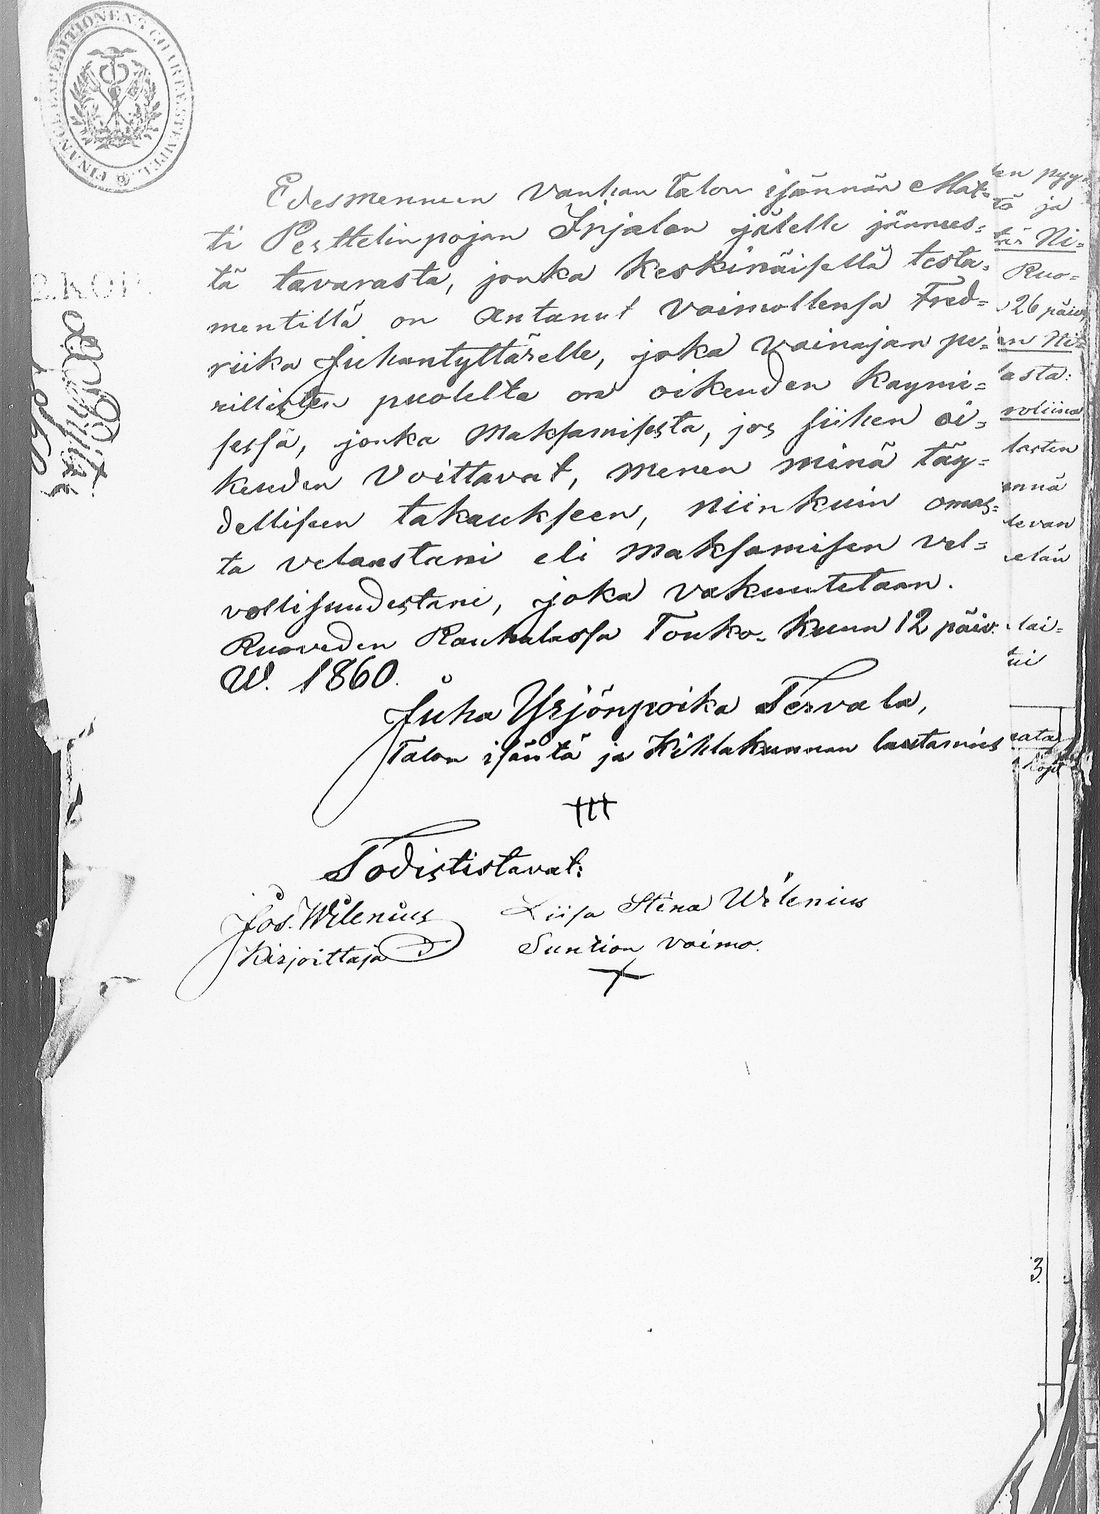 FINANCE EXPEDITIONENS CHARTÆ STEMPEL
2. KOP.
1860
Edesmennen vanhan talon isännän Mat=
ti Perttelinpojan Irjalan jälelle jäänees=
tä tavarasta, jonka keskinäisellä testa=
mentillä on antanut vaimollensa Fred=
riika Juhantyttärelle, joka vainajan pe=
rillisten puolelta on oikeuden käymi=
sessä, jonka maksamisesta, jos siihen oi=
keuden voittavat, menen minä täy=
delliseen takaukseen, niinkuin omas=
ta velastani eli maksamisen vel=
vollisuudestani, joka vakuutetaan.
Ruoveden Rauhalassa Touko-kuun 12 päiv.
W. 1860.
Juha Yrjönpoika Tervala,
Talon isäntä ja Kihlakunnan lautamies
Todististavat:
Jos. Wilenius
Kirjoittaja
Liisa Stina Wilenius
Suntion vaimo.
en pyy
tä ja
Ni=
Ruo=
26 päiv
an Ni=
asta:
roliina
lasten
ännä
levan
elän
lai=
tui
rata
Kop
3.